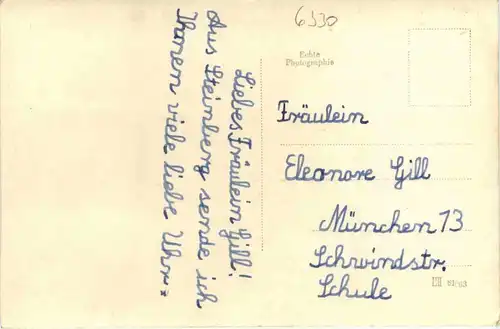 6330
Echte
Photographie
Liebes Fräulein Gill!
Aus Steinberg sende ich
Ihnen viele liebe Uhr=
Fräulein
Eleonore Gill
München 13
Schwindstr.
Schule